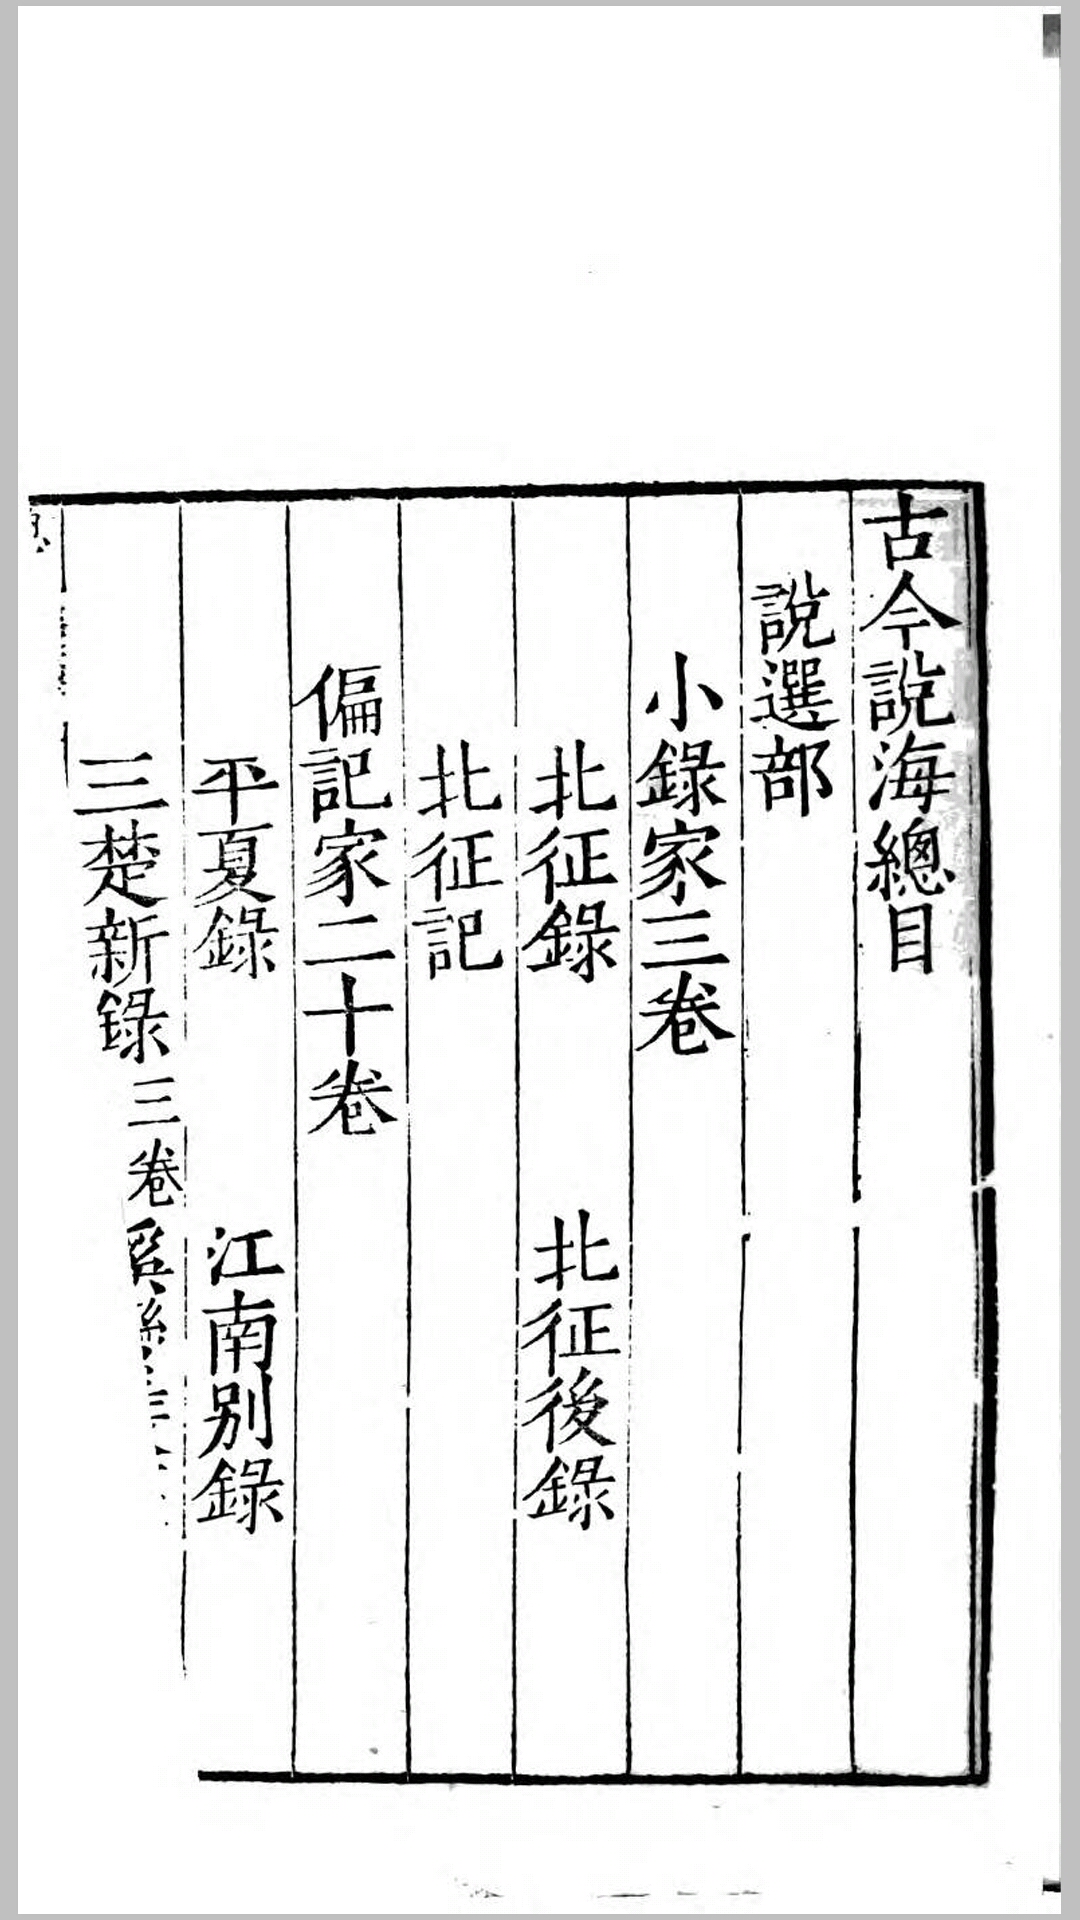 古今說海總目
說選部
小錄家三卷
北征錄 北征後錄
北征記
偏記家二十卷
平夏錄 江南別錄
三楚新錄三卷